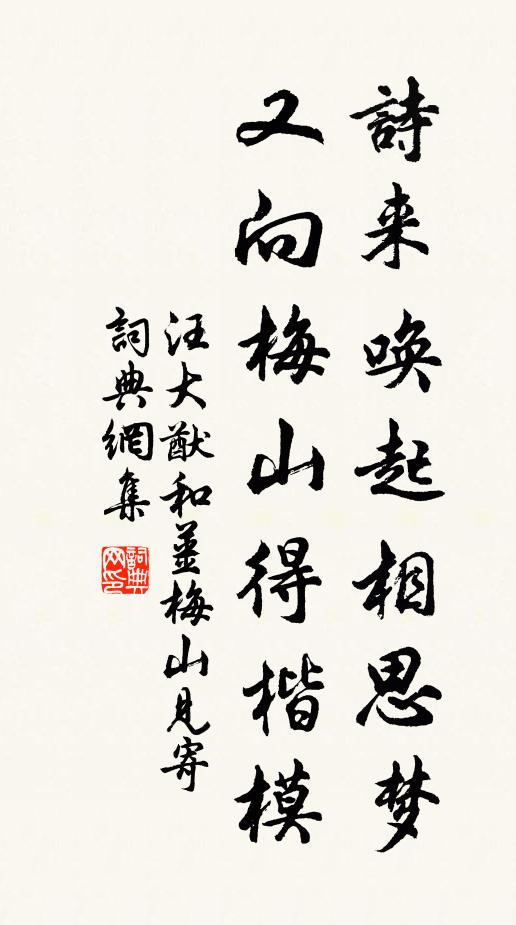 詩来喚起相思梦
又向梅山得楷模
汪大猷和姜梅山見寄
詞典網集
詞典网印